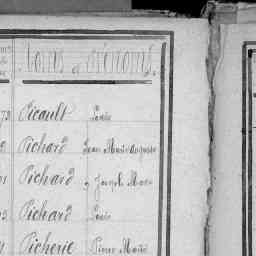 Noms et prénoms.
Picault Louis
Pichard Jean Marie Auguste
Pichard Joseph Marie
Pichard Louis
Picherie Pierre Marie